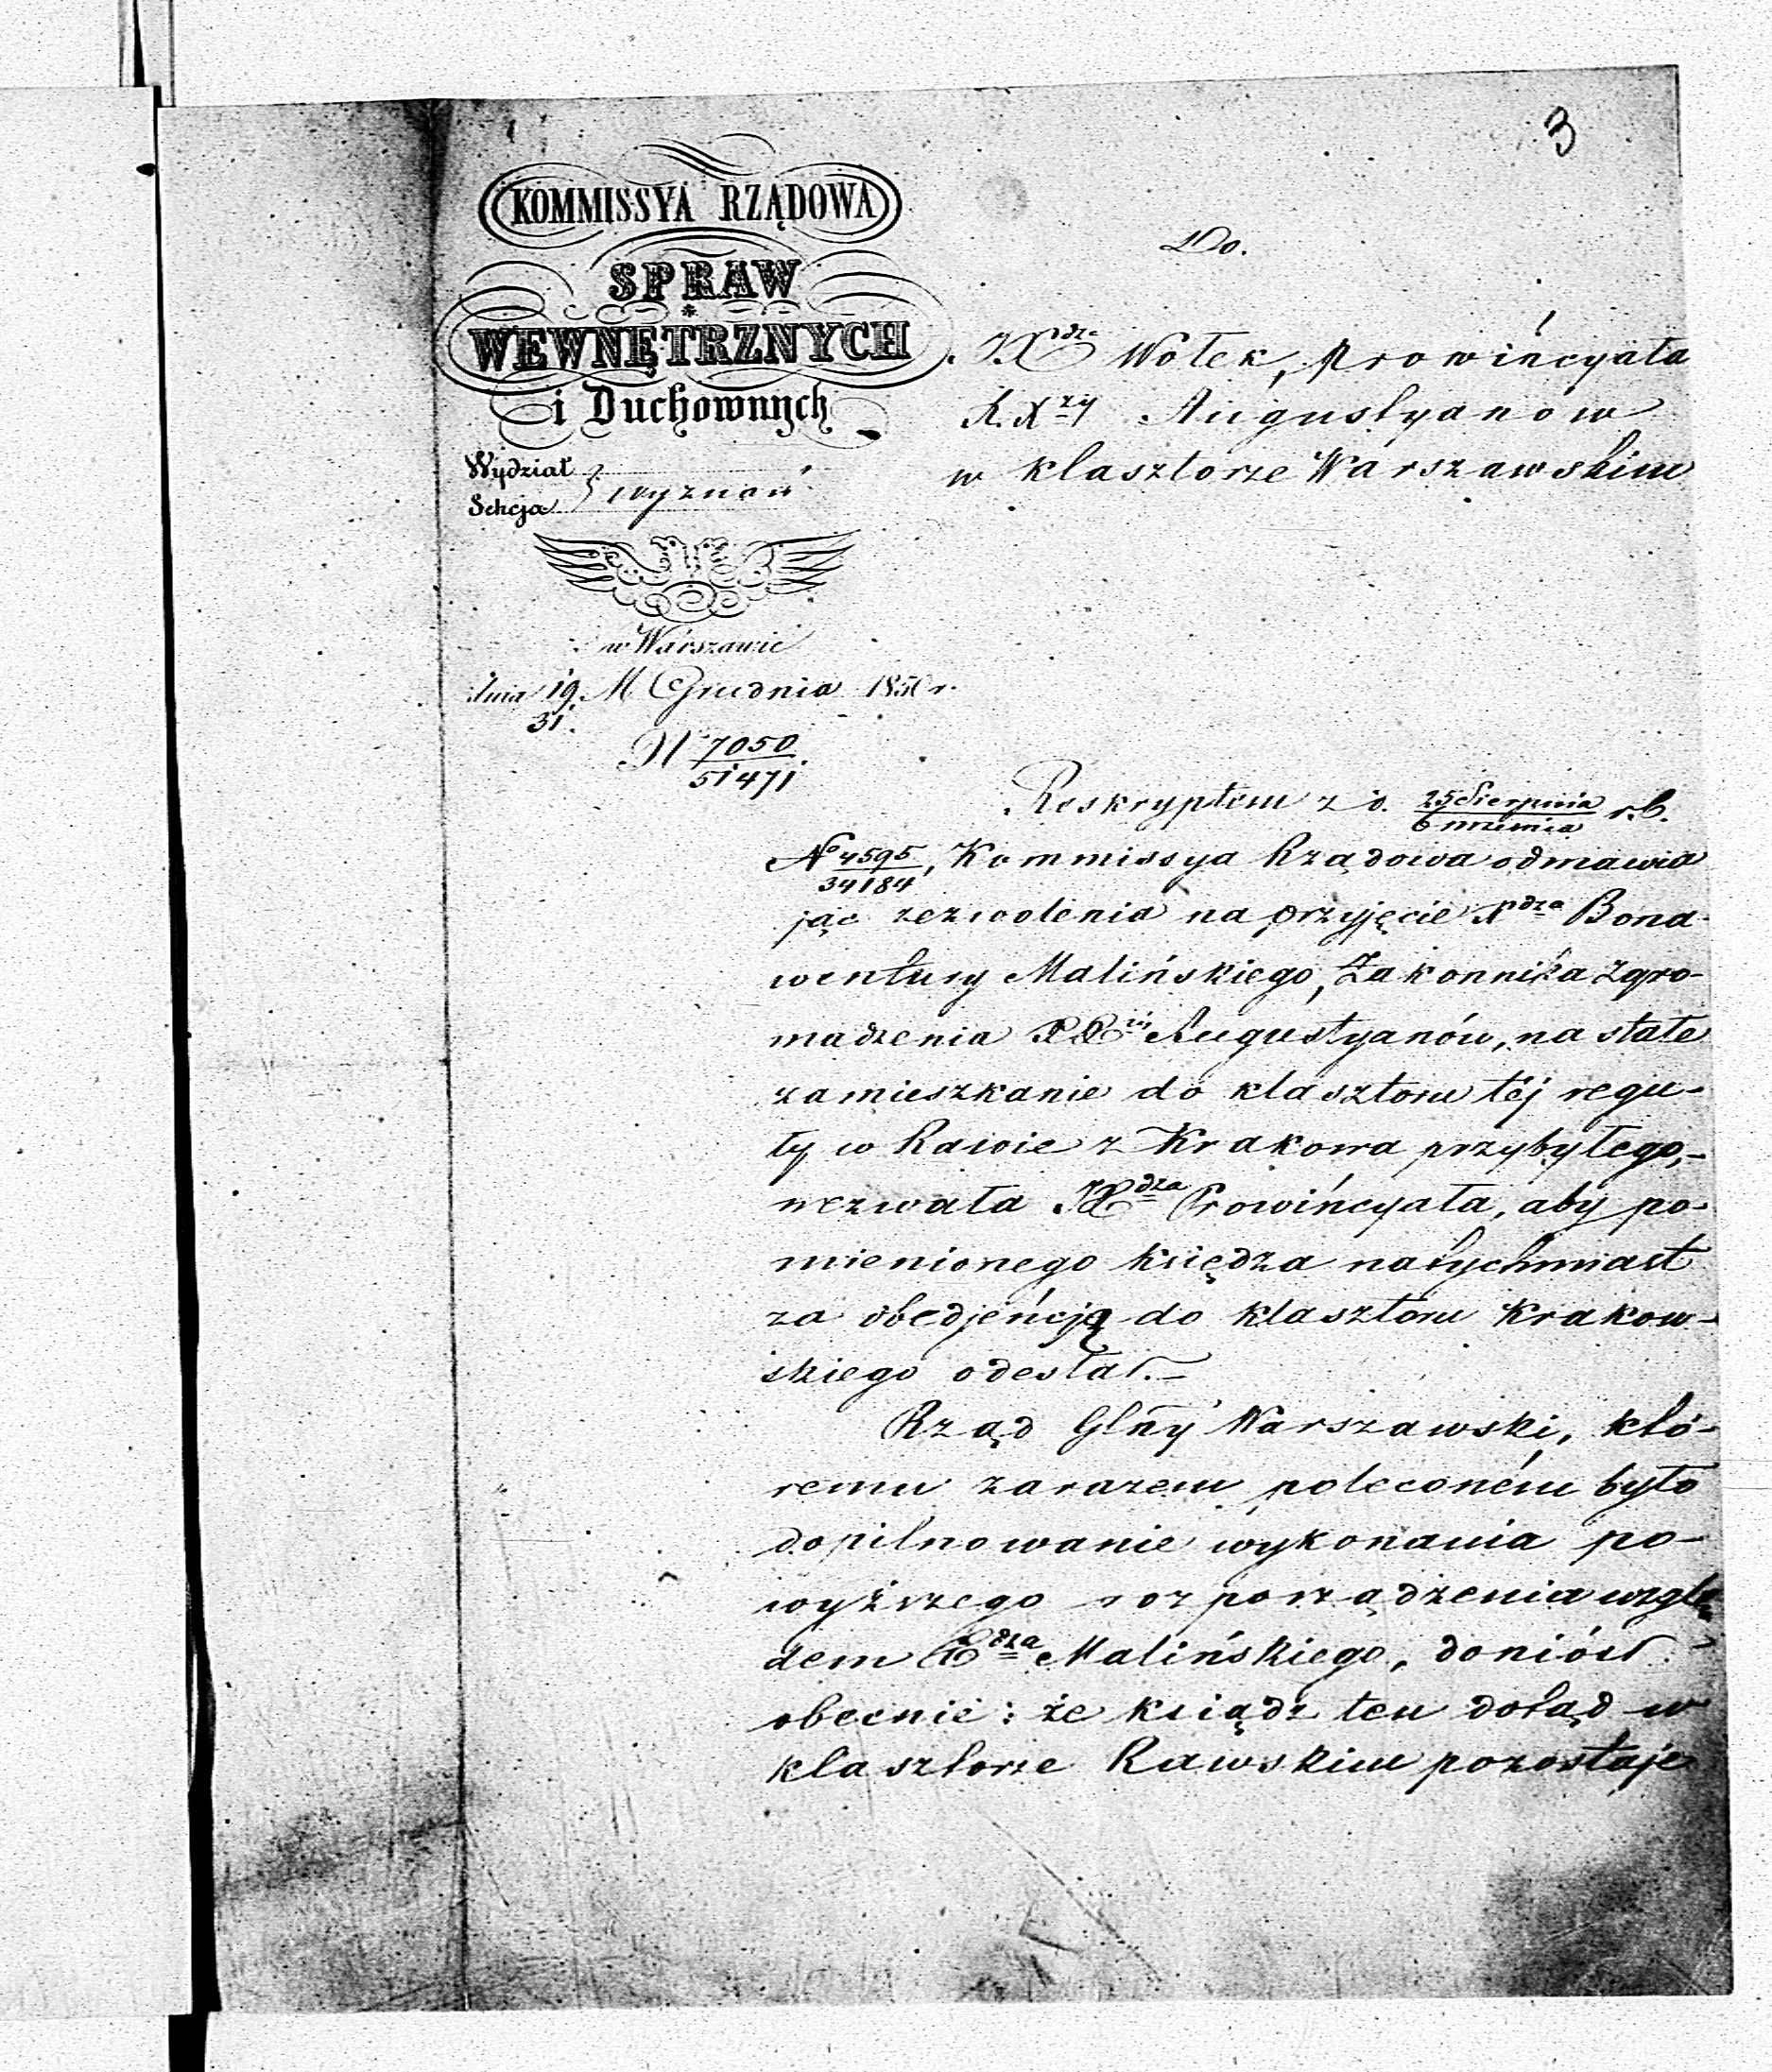 3
KOMMISSYA RZĄDOWA
SPRAW
WEWNĘTRZNYCH
i Duchownych
Wydział
Sekcja } wyznań
w Warszawie
dnia 19/31 M Grudnia 1850 r.
N 7050/51471.
Do.
JXdza Wołek, Prowińcyała
XXzy Augustyanów
w klasztorze Warszawskim
Reskryptem z d. 25 Sierpnia/6 września r.b.
No 4595/34184, Kommissya Rządowa odmawia
jąc zezwolenia na przyjęcie Xdza Bona-
wentury Malińskiego, Zakonnika Zgro-
madzenia XXży Augustyanów, na stałe
zamieszkanie do klasztoru téj regu-
ły w Rawie z Krakowa przybyłego,-
wezwała JXdza Prowińcyała, aby po-
mienionego księdza natychmiast
za obedjeńcją do klasztoru Krakow-
skiego odesłał.-
Rząd Glny Warszawski, któ-
remu zarazem poleconém było
dopilnowanie wykonania po-
wyższego rozporządzenia wzglę
dem Xdza Malińskiego, doniósł
obecnie: że ksiądz ten dotąd w
klasztorze Rawskim pozostaje